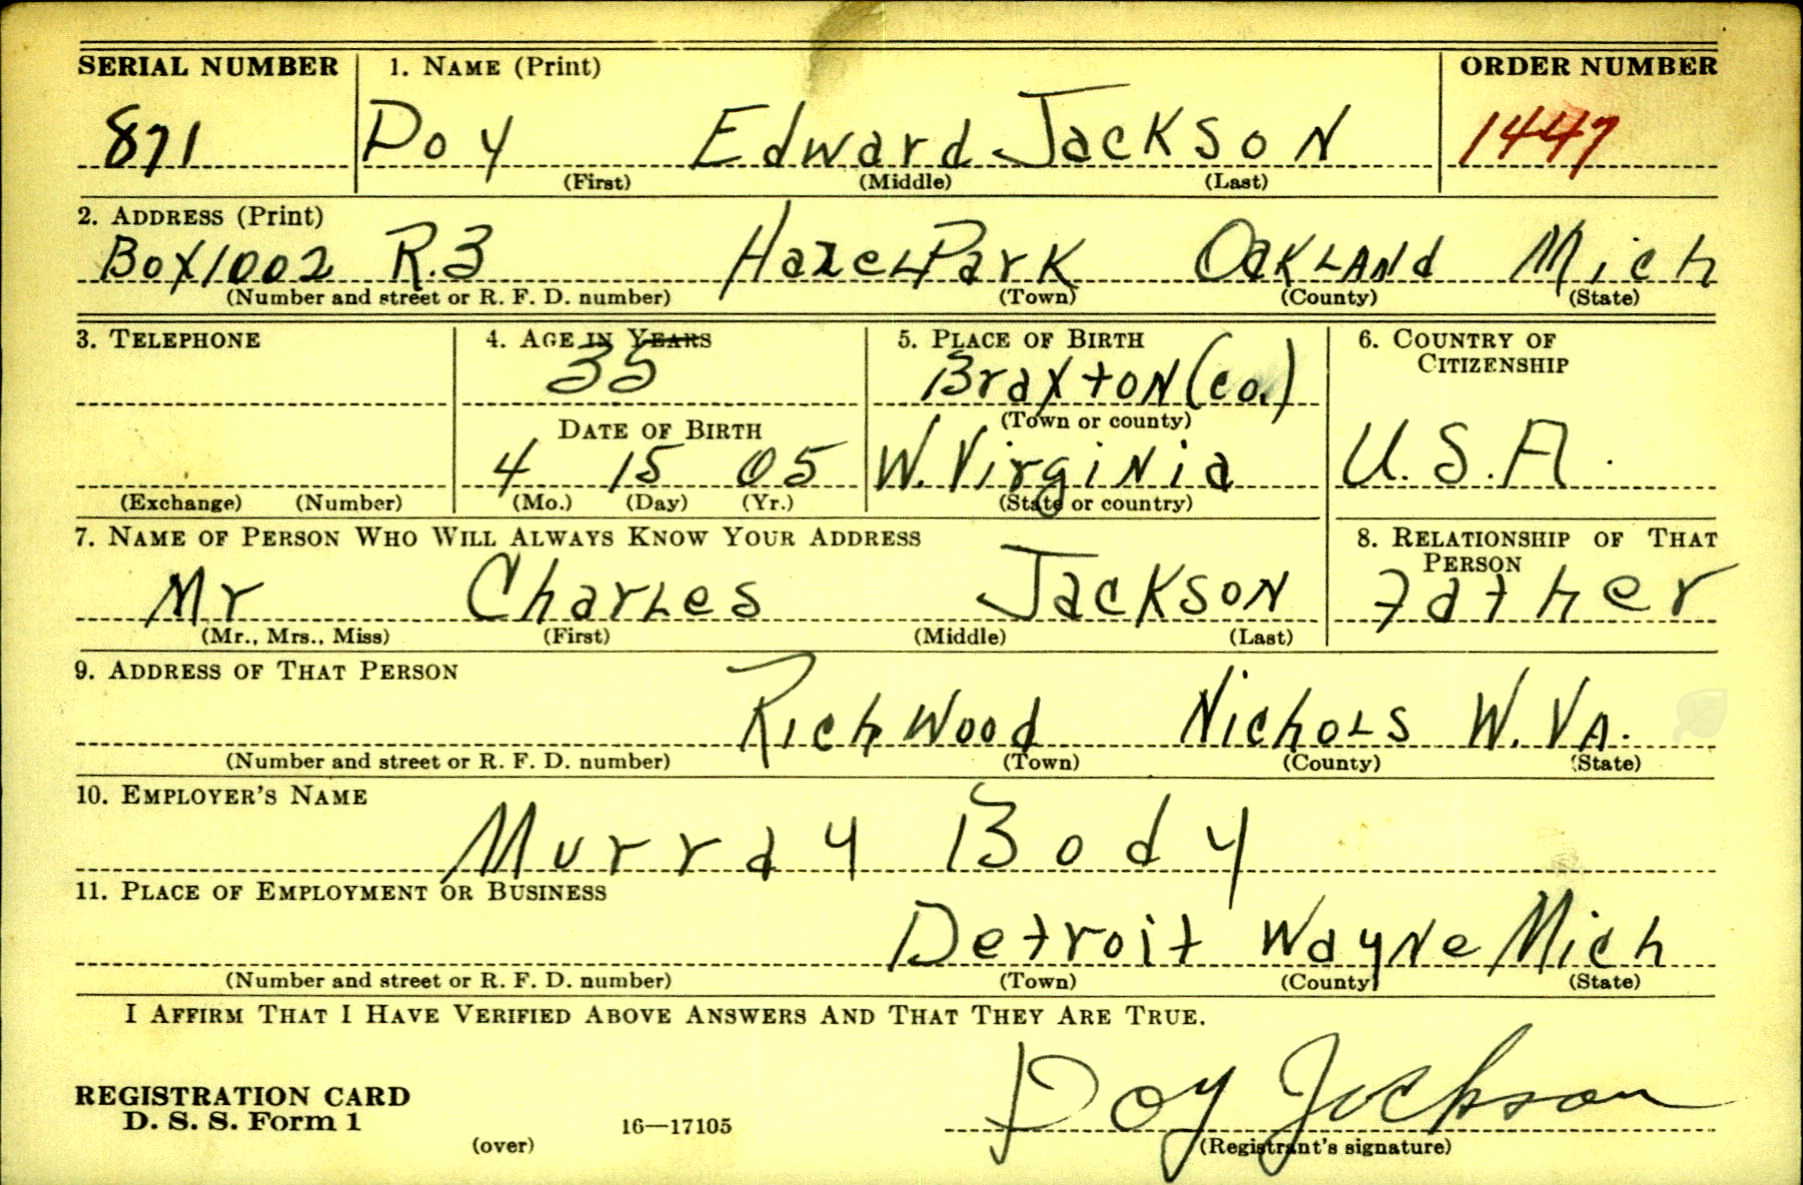 SERIAL NUMBER 1. NAME (Print) ORDER NUMBER
871 Doy Edward Jackson 1447
(First) (Middle) (Last)
2. ADDRESS (Print)
Box 1002 R.3 Hazel Park Oakland Mich
(Number and street or R. F. D. number) (Town) (County) (State)
3. TELEPHONE 4. AGE IN YEARS 5. PLACE OF BIRTH 6. COUNTRY OF CITIZENSHIP
35 Braxton (co.)
DATE OF BIRTH (Town or county)
4 15 05 W. Virginia U.S.A.
(Exchange) (Number) (Mo.) (Day) (Yr.) (State or country)
7. NAME OF PERSON WHO WILL ALWAYS KNOW YOUR ADDRESS 8. RELATIONSHIP OF THAT PERSON
Mr Charles Jackson Father
(Mr., Mrs., Miss) (First) (Middle) (Last)
9. ADDRESS OF THAT PERSON
Richwood Nichols W. VA.
(Number and street or R. F. D. number) (Town) (County) (State)
10. EMPLOYER'S NAME
Murray Body
11. PLACE OF EMPLOYMENT OR BUSINESS
Detroit Wayne Mich
(Number and street or R. F. D. number) (Town) (County) (State)
I AFFIRM THAT I HAVE VERIFIED ABOVE ANSWERS AND THAT THEY ARE TRUE.
Doy Jackson
REGISTRATION CARD
D. S. S. Form 1 16—17105
(over) (Registrant's signature)